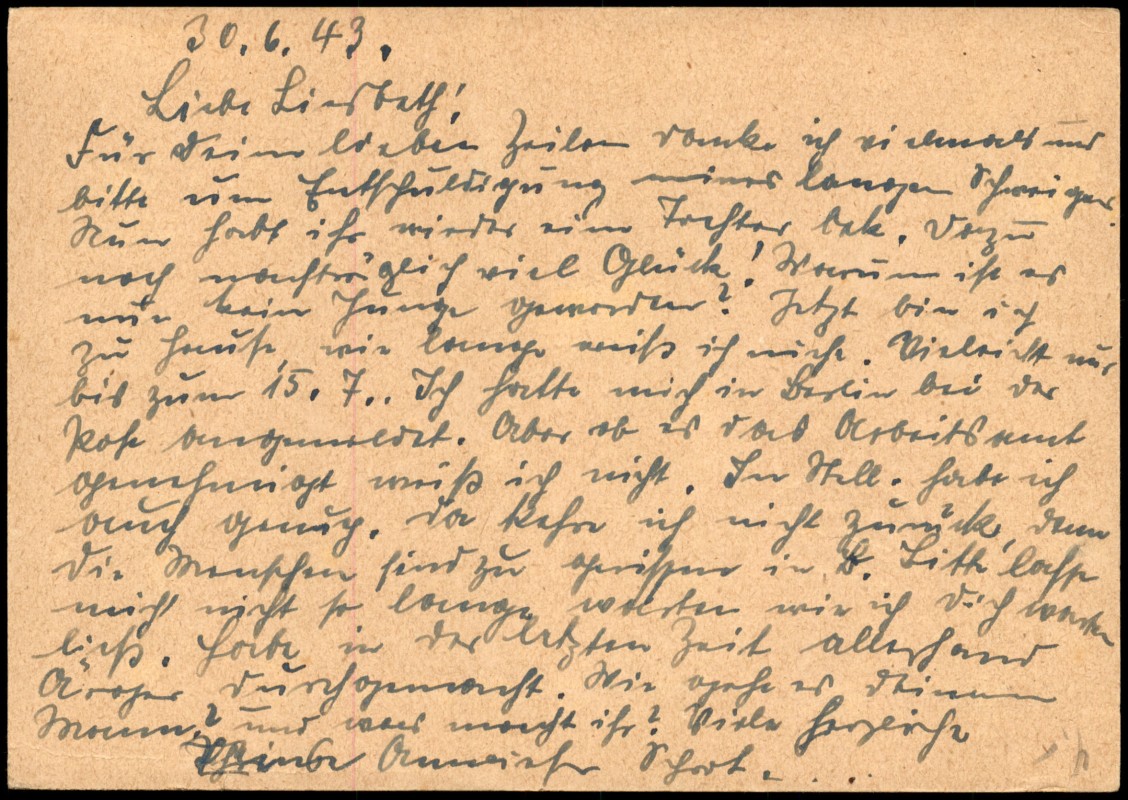 30.6.43.
Liebe Liesbeth!
Für Deine lieben Zeilen danke ich vielmals und
bitte um Entschuldigung meines langen Schweigens.
Nun habt ihr wieder eine Tochter bek. Dazu
noch nachträglich viel Glück! Warum ist es
nun kein Junge geworden? Jetzt bin ich
zu Hause, wie lange weiß ich nicht. Vielleicht nur
bis zum 15.7.. Ich hatte mich in Berlin bei der
Post angemeldet. Aber ob es das Arbeitsamt
genehmigt weiß ich nicht. In Stell. habe ich
auch genug. Da kehre ich nicht zurück, denn
die Menschen sind zu gerissen in B. Bitte lasse
mich nicht so lange warten wie ich Dich warten
ließ. Habe in der letzten Zeit allerhand
Ärger durchgemacht. Wie geht es Deinem
Mann? und was macht ihr? Viele herzliche
Anneliese